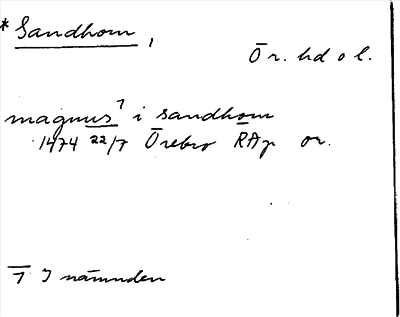 * Sandhom,
Ör. hd o l.
magnus 1 i sandhom
1474 22/7 Örebro RAp or.
1 I nämnden